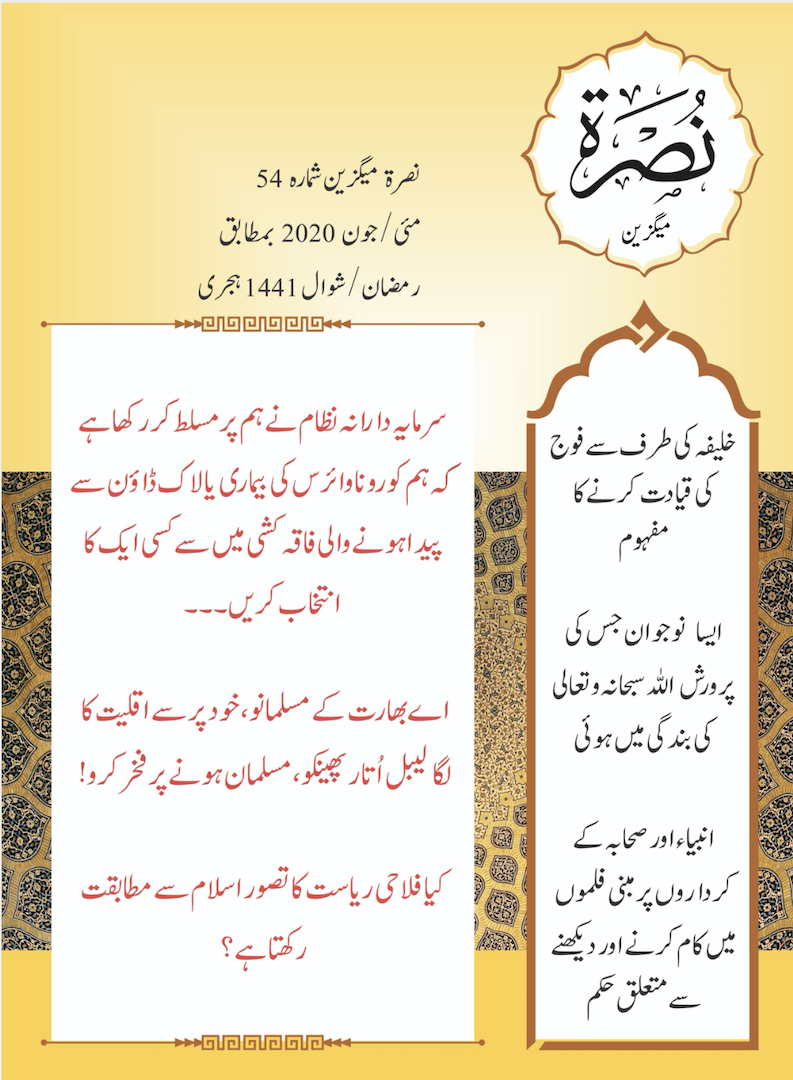 نُصْرَة
میگزین
نصرۃ میگزین شمارہ 54
مئی/جون 2020 بمطابق
رمضان/شوال 1441 ہجری
خلیفہ کی طرف سے فوج
کی قیادت کرنے کا
مفہوم
ایسا نوجوان جس کی
پرورش اللہ سبحانہ و تعالی
کی بندگی میں ہوئی
انبیاء اور صحابہ کے
کرداروں پر مبنی فلموں
میں کام کرنے اور دیکھنے
سے متعلق حکم
سرمایہ دارانہ نظام نے ہم پر مسلط کر رکھا ہے
کہ ہم کورونا وائرس کی بیماری یا لاک ڈاؤن سے
پیدا ہونے والی فاقہ کشی میں سے کسی ایک کا
انتخاب کریں۔۔۔
اے بھارت کے مسلمانو، خود پر سے اقلیت کا
لگا لیبل اُتار پھینکو، مسلمان ہونے پر فخر کرو!
کیا فلاحی ریاست کا تصور اسلام سے مطابقت
رکھتا ہے؟